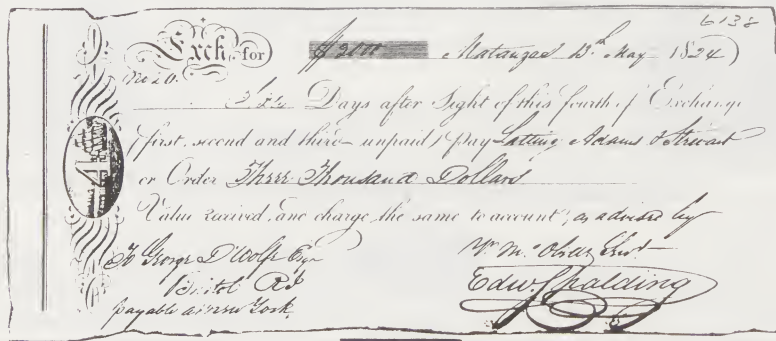 6138
Exch. for $ 3000 Matanzas 13th May 1824
No 20.
Days after Sight of this fourth of Exchange
(first, second and third unpaid) Pay Latting Adams & Stewart
or Order Three Thousand Dollars
Value received, and charge the same to account, as advised by
To George D'Wolf Esqr
Yr Mo Obdt Servt
Bristol RI
Edw Spalding
payable at New York